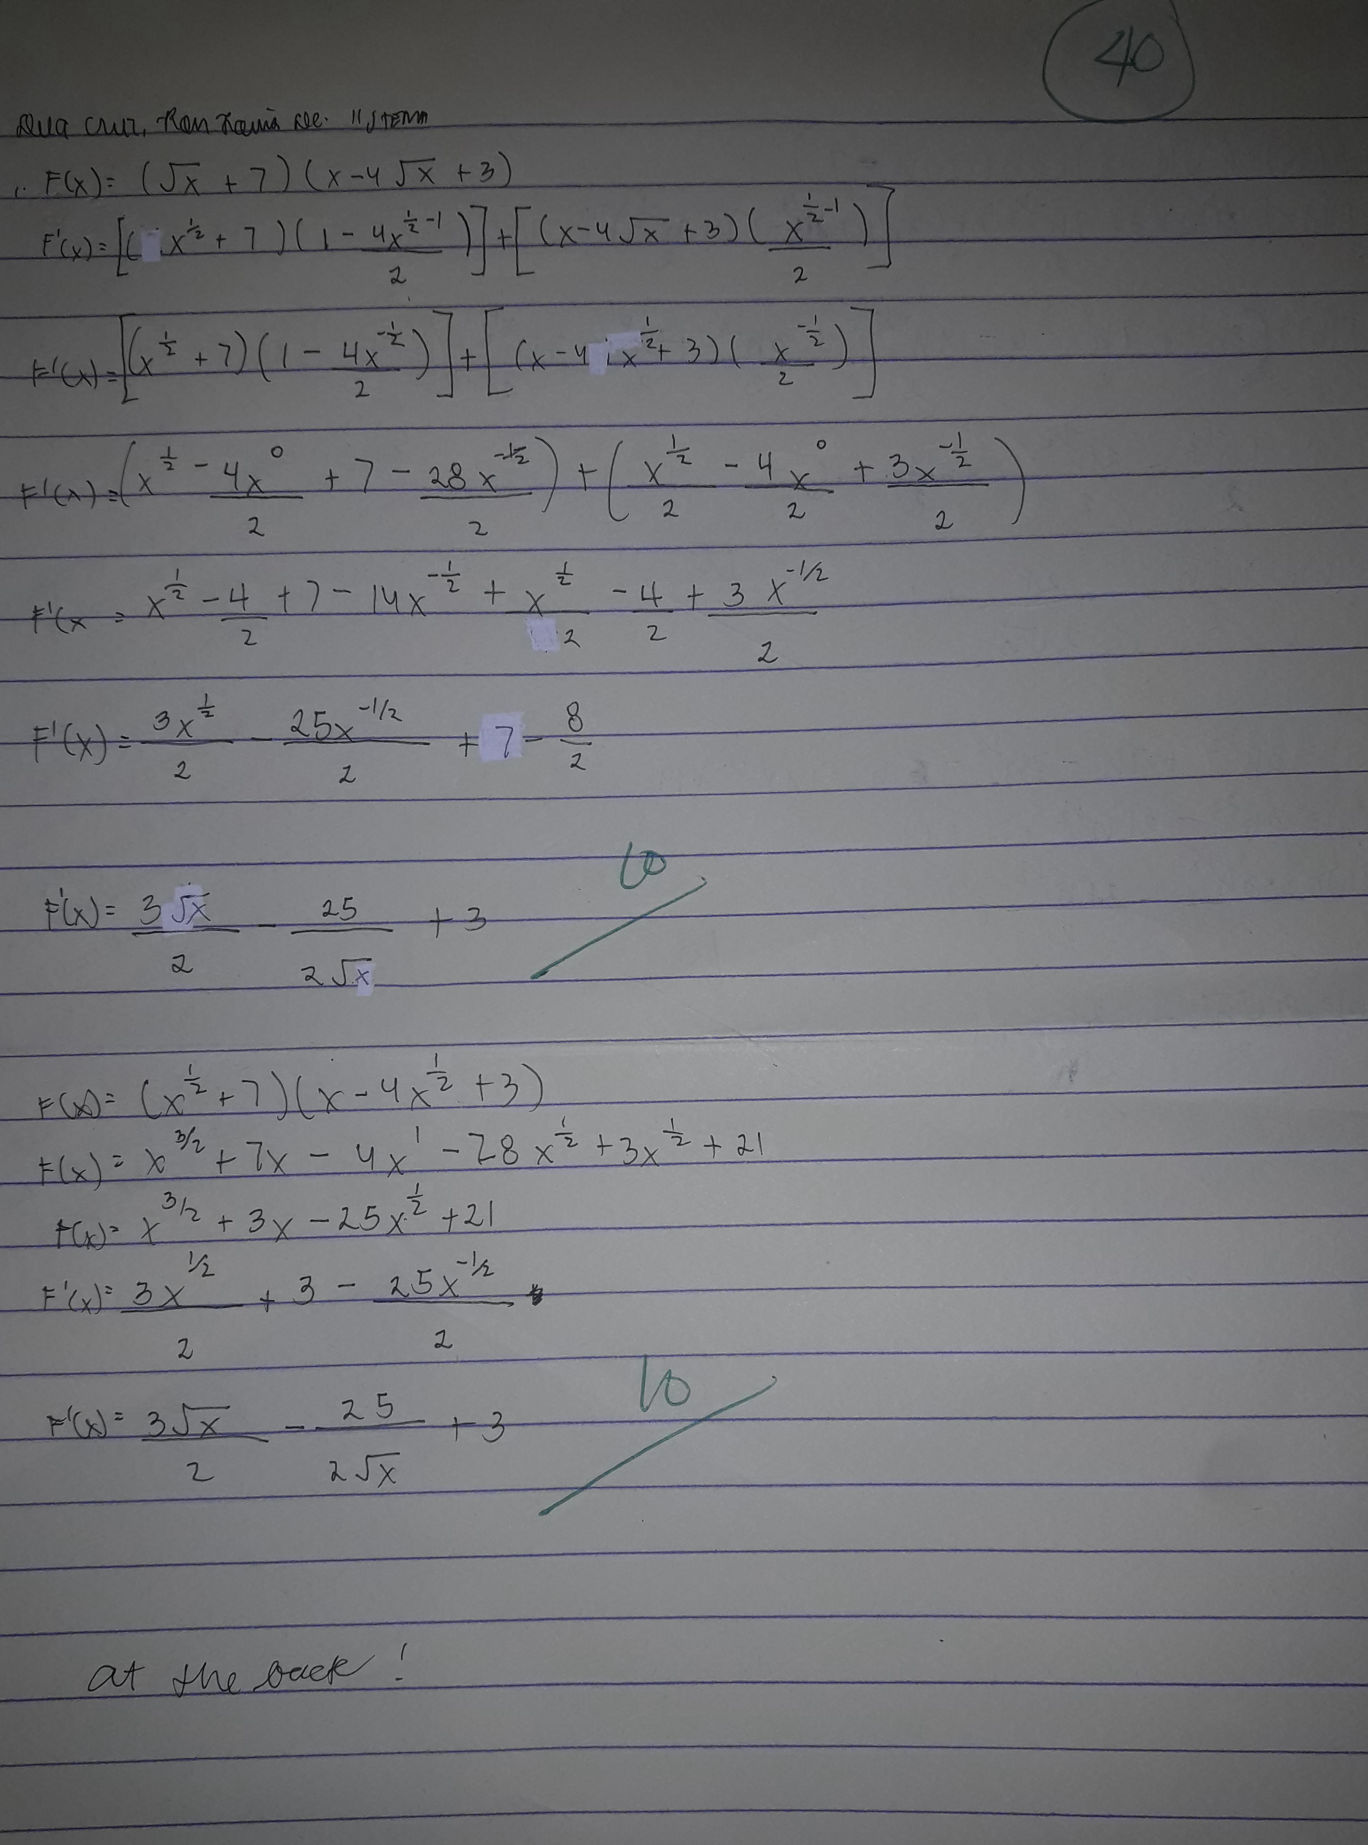 40
Dela Cruz, Ron 11STEM
1. F(x) = (√x + 7)(x-4√x + 3)
F'(x) = [(x^½ + 7)(1 - 4x^(½-1)/2)] + [(x-4√x + 3)(x^(½-1)/2)]
F'(x) = [(x^½ + 7)(1 - 4x^-½/2)] + [(x-4x^½ + 3)(x^-½/2)]
F'(x) = (x^½ - 4x^0/2 + 7 - 28x^-½/2) + (x^½/2 - 4x^0/2 + 3x^-½/2)
F'(x = x^½ - 4/2 + 7 - 14x^-½ + x^½/2 - 4/2 + 3x^-1/2/2
F'(x) = 3x^½/2 - 25x^-1/2/2 + 7 - 8/2
10
F'(x) = 3√x/2 - 25/2√x + 3
F(x) = (x^½ + 7)(x - 4x^½ + 3)
F(x) = x^3/2 + 7x - 4x^1 - 28x^½ + 3x^½ + 21
F(x) = x^3/2 + 3x - 25x^½ + 21
F'(x) = 3x^1/2/2 + 3 - 25x^-1/2/2
10
F'(x) = 3√x/2 - 25/2√x + 3
at the back!